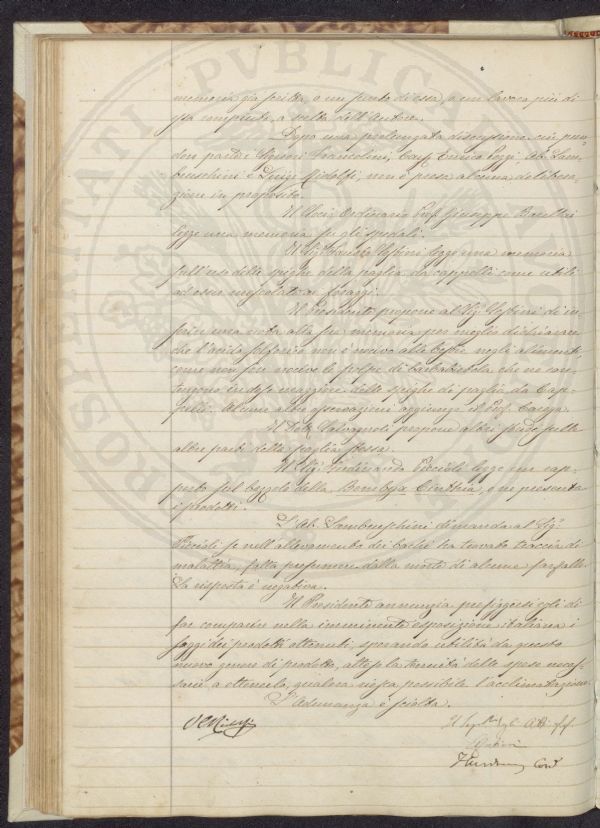 memoria già scritta, o un sunto di essa, o un lavoro più di
essa compiuto, a scelta dell'Autore.
Dopo una prolungata discussione cui pren-
don parte i Signori Franceolini, Cav. Enrico Poggi, Ab. Lam-
bruschini e Luigi Ridolfi, non è presa alcuna delibera-
zione in proposito.
Il Socio Ordinario Prof. Giuseppe
legge una memoria su gli spedali.
Il Sig. legge una memoria
sull'uso delle spighe della paglia da cappelli come utili
ad esser mescolate ai foraggi.
Il Presidente propone al Sig. di in-
serire una nota alla sua memoria per meglio dichiarare
che l'acido solforico non è nocivo alle bestie negli alimenti,
come non son nocive le polpe di barbabietola che ne con-
tengono in dose maggiore delle spighe di paglia da Cap-
pello. Alcune altre osservazioni aggiunge il Prof. Cuegà.
Il Dott. Salvagnoli propone altri studi sulle
altre parti della paglia stessa.
Il Sig. Ferdinando Piccioli legge un rap-
porto sul bozzolo della Bombyx Cinthia, e ne presenta
i prodotti.
L'Ab. Lambruschini dimanda al Sig.
Piccioli se nell'allevamento dei bachi ha trovato traccia di
malattia, fatta presumere dalla morte di alcune farfalle.
La risposta è negativa.
Il Presidente annunzia prefiggersi egli di
far comparire nella imminente esposizione italiana i
saggi dei prodotti ottenuti, sperando utilità da questo
nuovo genere di prodotto, attesa la tenuità delle spese neces-
sarie a ottenerlo, qualora riesca possibile l'acclimatazione.
L'Adunanza è sciolta.
Ridolfi
Il Seg. degli Atti
PROSPERITATI PVBLICAE AVGENDAE